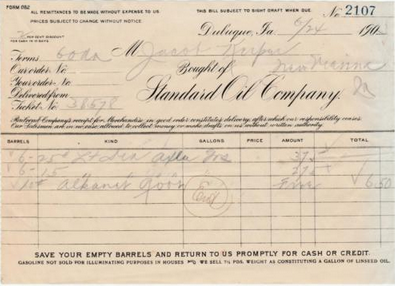 FORM 082 ALL REMITTANCES TO BE MADE WITHOUT EXPENSE TO US. THIS BILL SUBJECT TO SIGHT DRAFT WHEN DUE.
PRICES SUBJECT TO CHANGE WITHOUT NOTICE. No. 2107
Dubuque, Ia. 190
M Jacob
Terms
Our order, No. Bought of New Vienna
Your order, No. Standard Oil Company. Ia
Delivered from
Ticket No.
Railroad Company's receipt for Merchandise in good order constitutes delivery, after which our responsibility ceases.
Our Salesmen are in no case allowed to collect money or make drafts on us without written authority.
BARRELS KIND GALLONS PRICE AMOUNT TOTAL
375
275
Alkanet Root Free 6.50
SAVE YOUR EMPTY BARRELS AND RETURN TO US PROMPTLY FOR CASH OR CREDIT.
GASOLINE NOT SOLD FOR ILLUMINATING PURPOSES IN HOUSES WE SELL 7½ LBS. WEIGHT AS CONSTITUTING A GALLON OF LINSEED OIL.